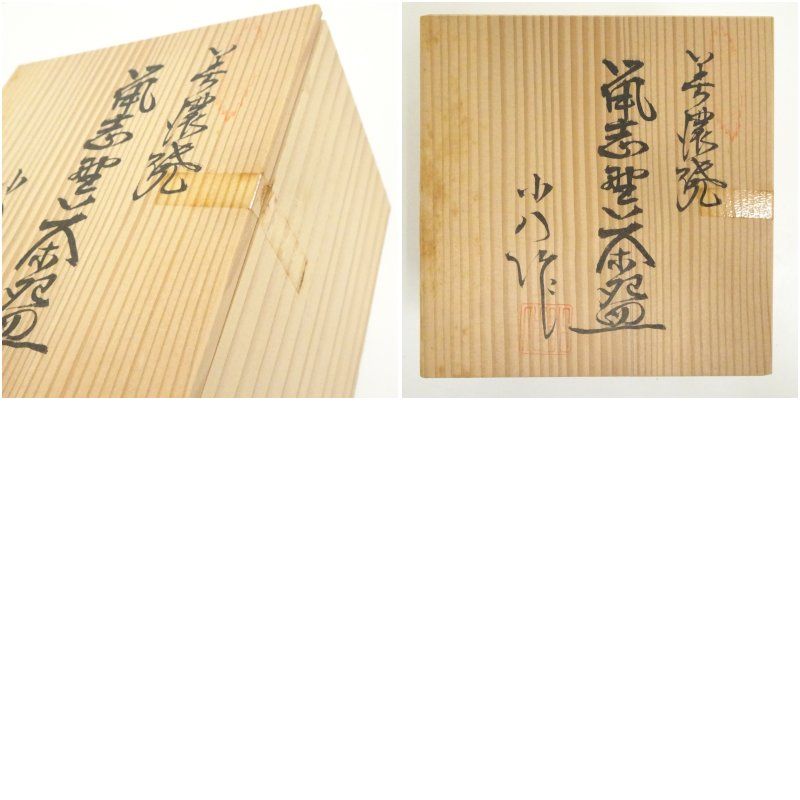 美濃焼
鼠志野
茶盌
美濃焼
鼠志野茶盌
小八作